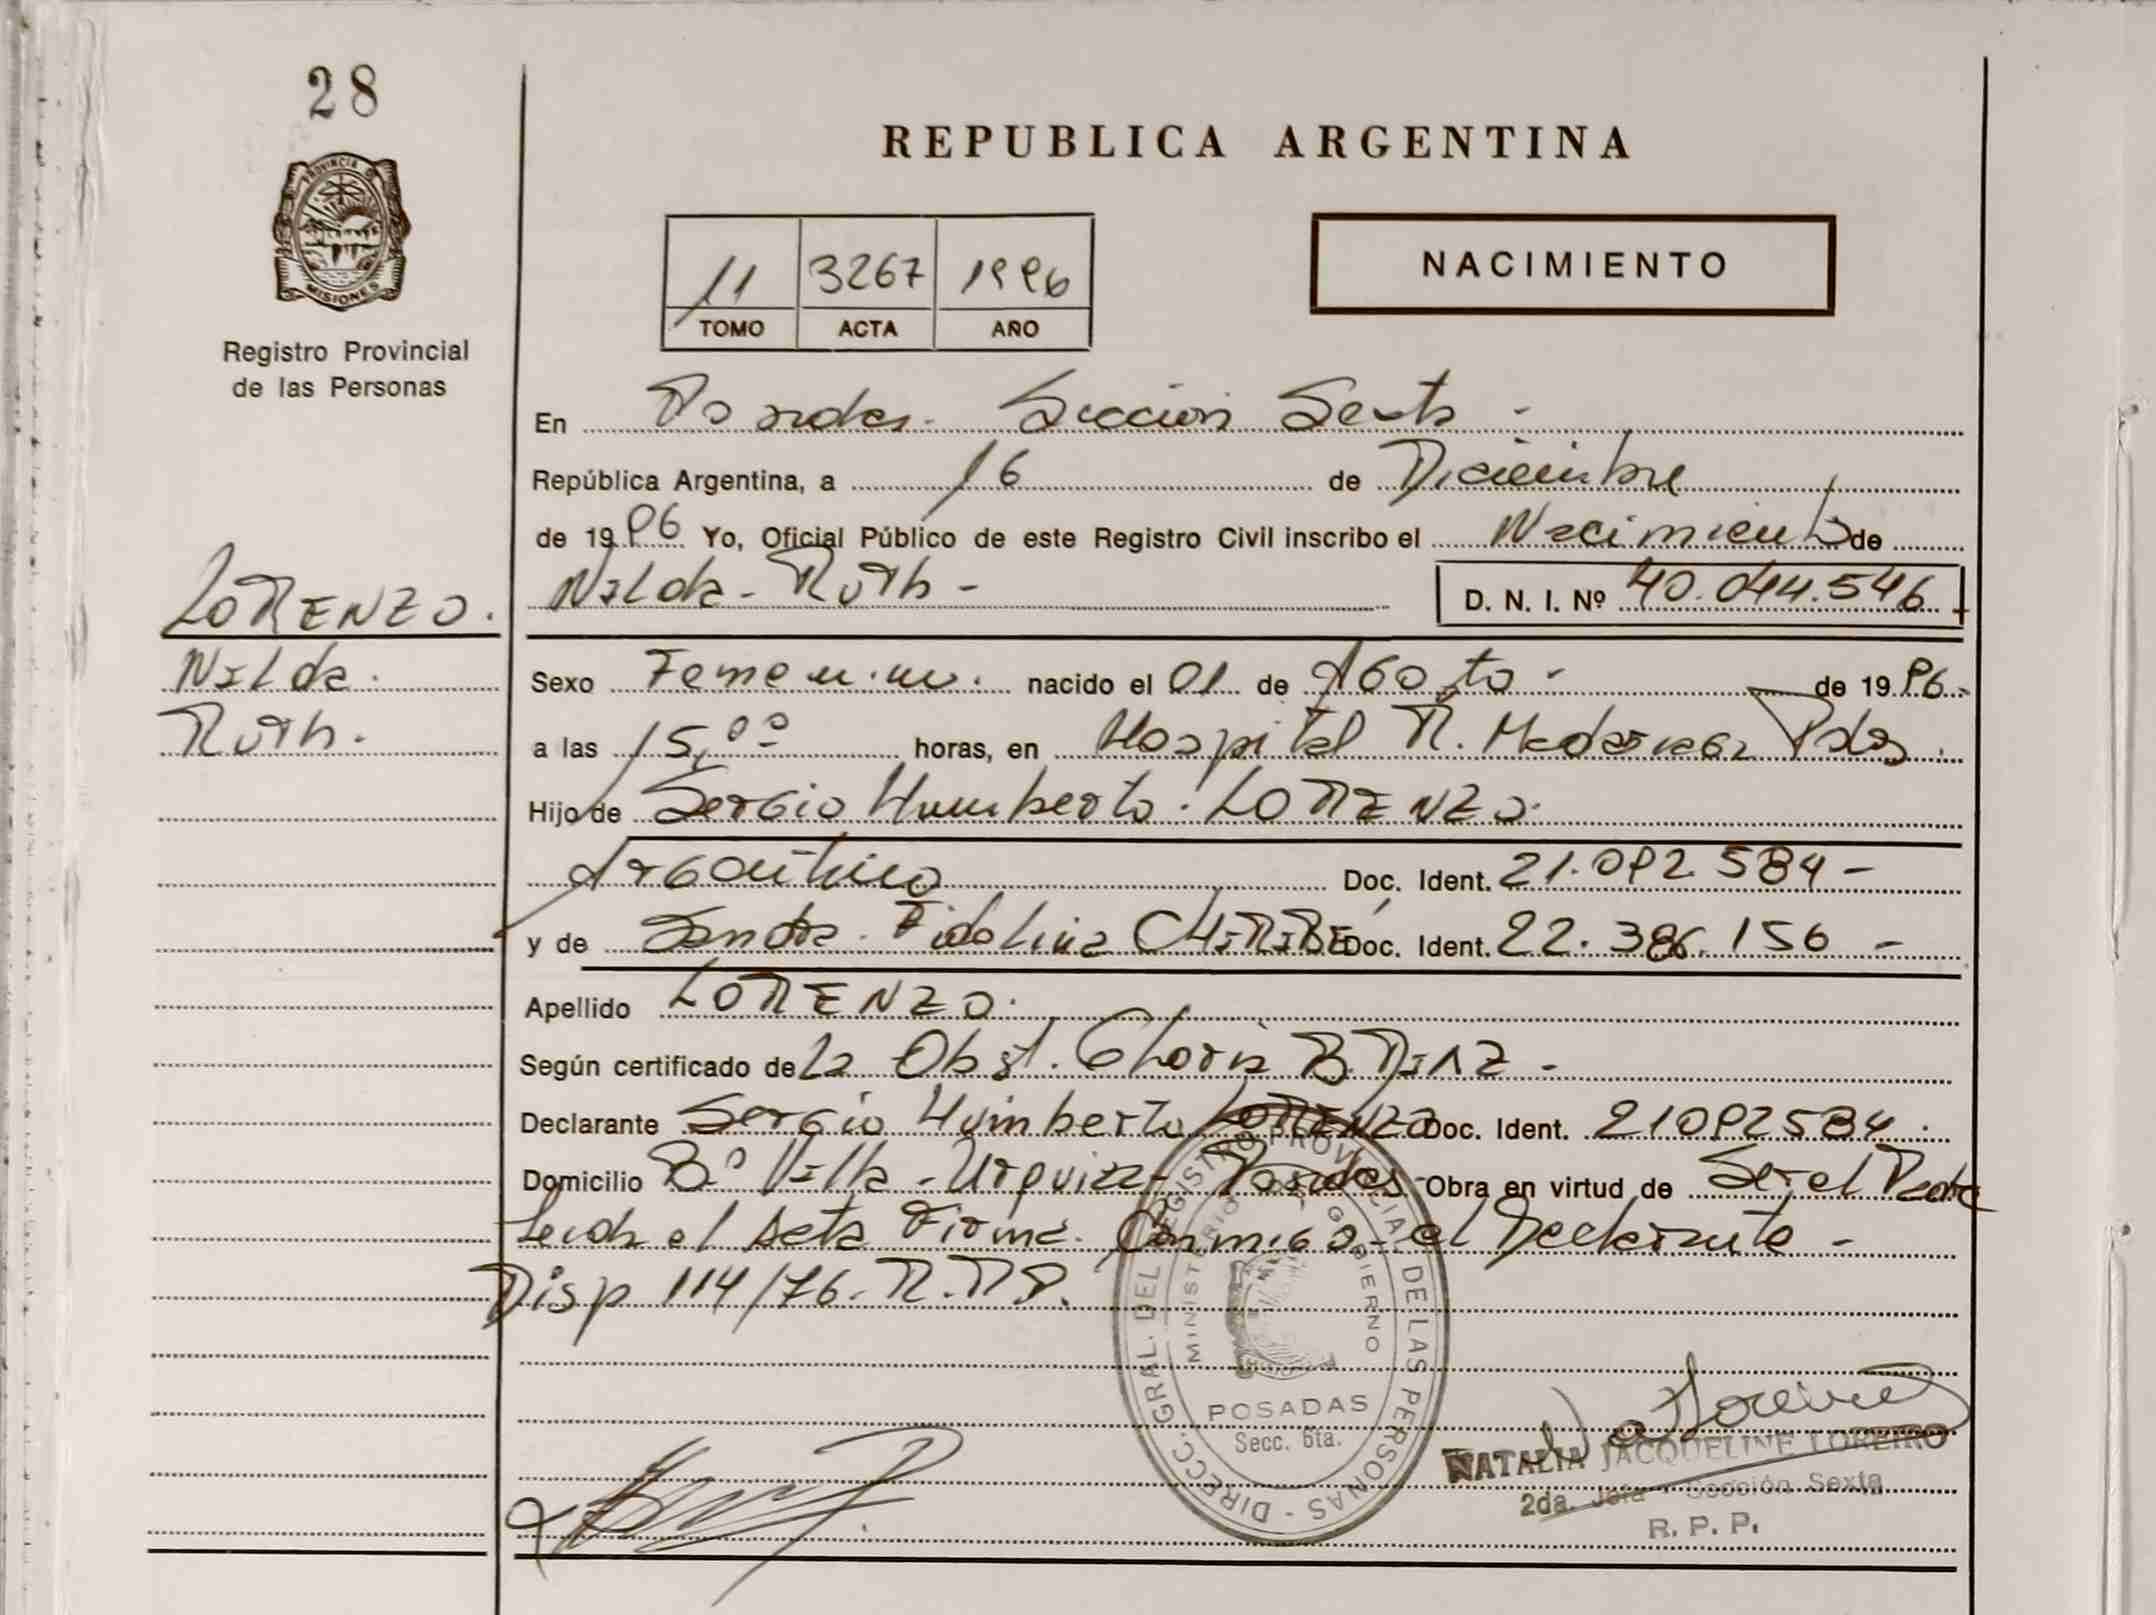 28
REPUBLICA ARGENTINA
PROVINCIA D
MISIONES
Registro Provincial
de las Personas
11 3267 1996
TOMO ACTA AÑO
NACIMIENTO
En Posadas - Sección Sexta -
República Argentina, a 16 de Diciembre
de 1996 Yo, Oficial Público de este Registro Civil inscribo el Nacimiento de
Nilda - Ruth - D. N. I. Nº 40.044.546
LORENZO.
Nilda.
Ruth.
Sexo Femenino. nacido el 01 de Agosto - de 1996-
a las 15,00 horas, en Hospital R. Madariaga Pdas.
Hijo de Sergio Humberto. LORENZO.
Argentino Doc. Ident. 21.092.584 -
y de Sandra. Fidelina CHIRIBE Doc. Ident. 22.386.156 -
Apellido LORENZO.
Según certificado de La Obst. Gloria B. DIAZ -
Declarante Sergio Humberto LORENZO Doc. Ident. 21092584.
Domicilio Bº Villa - Urquiza - Posadas - Obra en virtud de Ser el Padre
Leida el Acta Firma. Conmigo - el Declarante -
Disp 114/76. R.P.P.
DIRECC. GRAL. DEL REGISTRO PROVINCIAL DE LAS PERSONAS -
MINISTERIO GOBIERNO
POSADAS
Secc. 6ta.
NATALIA JACQUELINE LOREIRO
2da. Jefa - Sección Sexta
R. P. P.